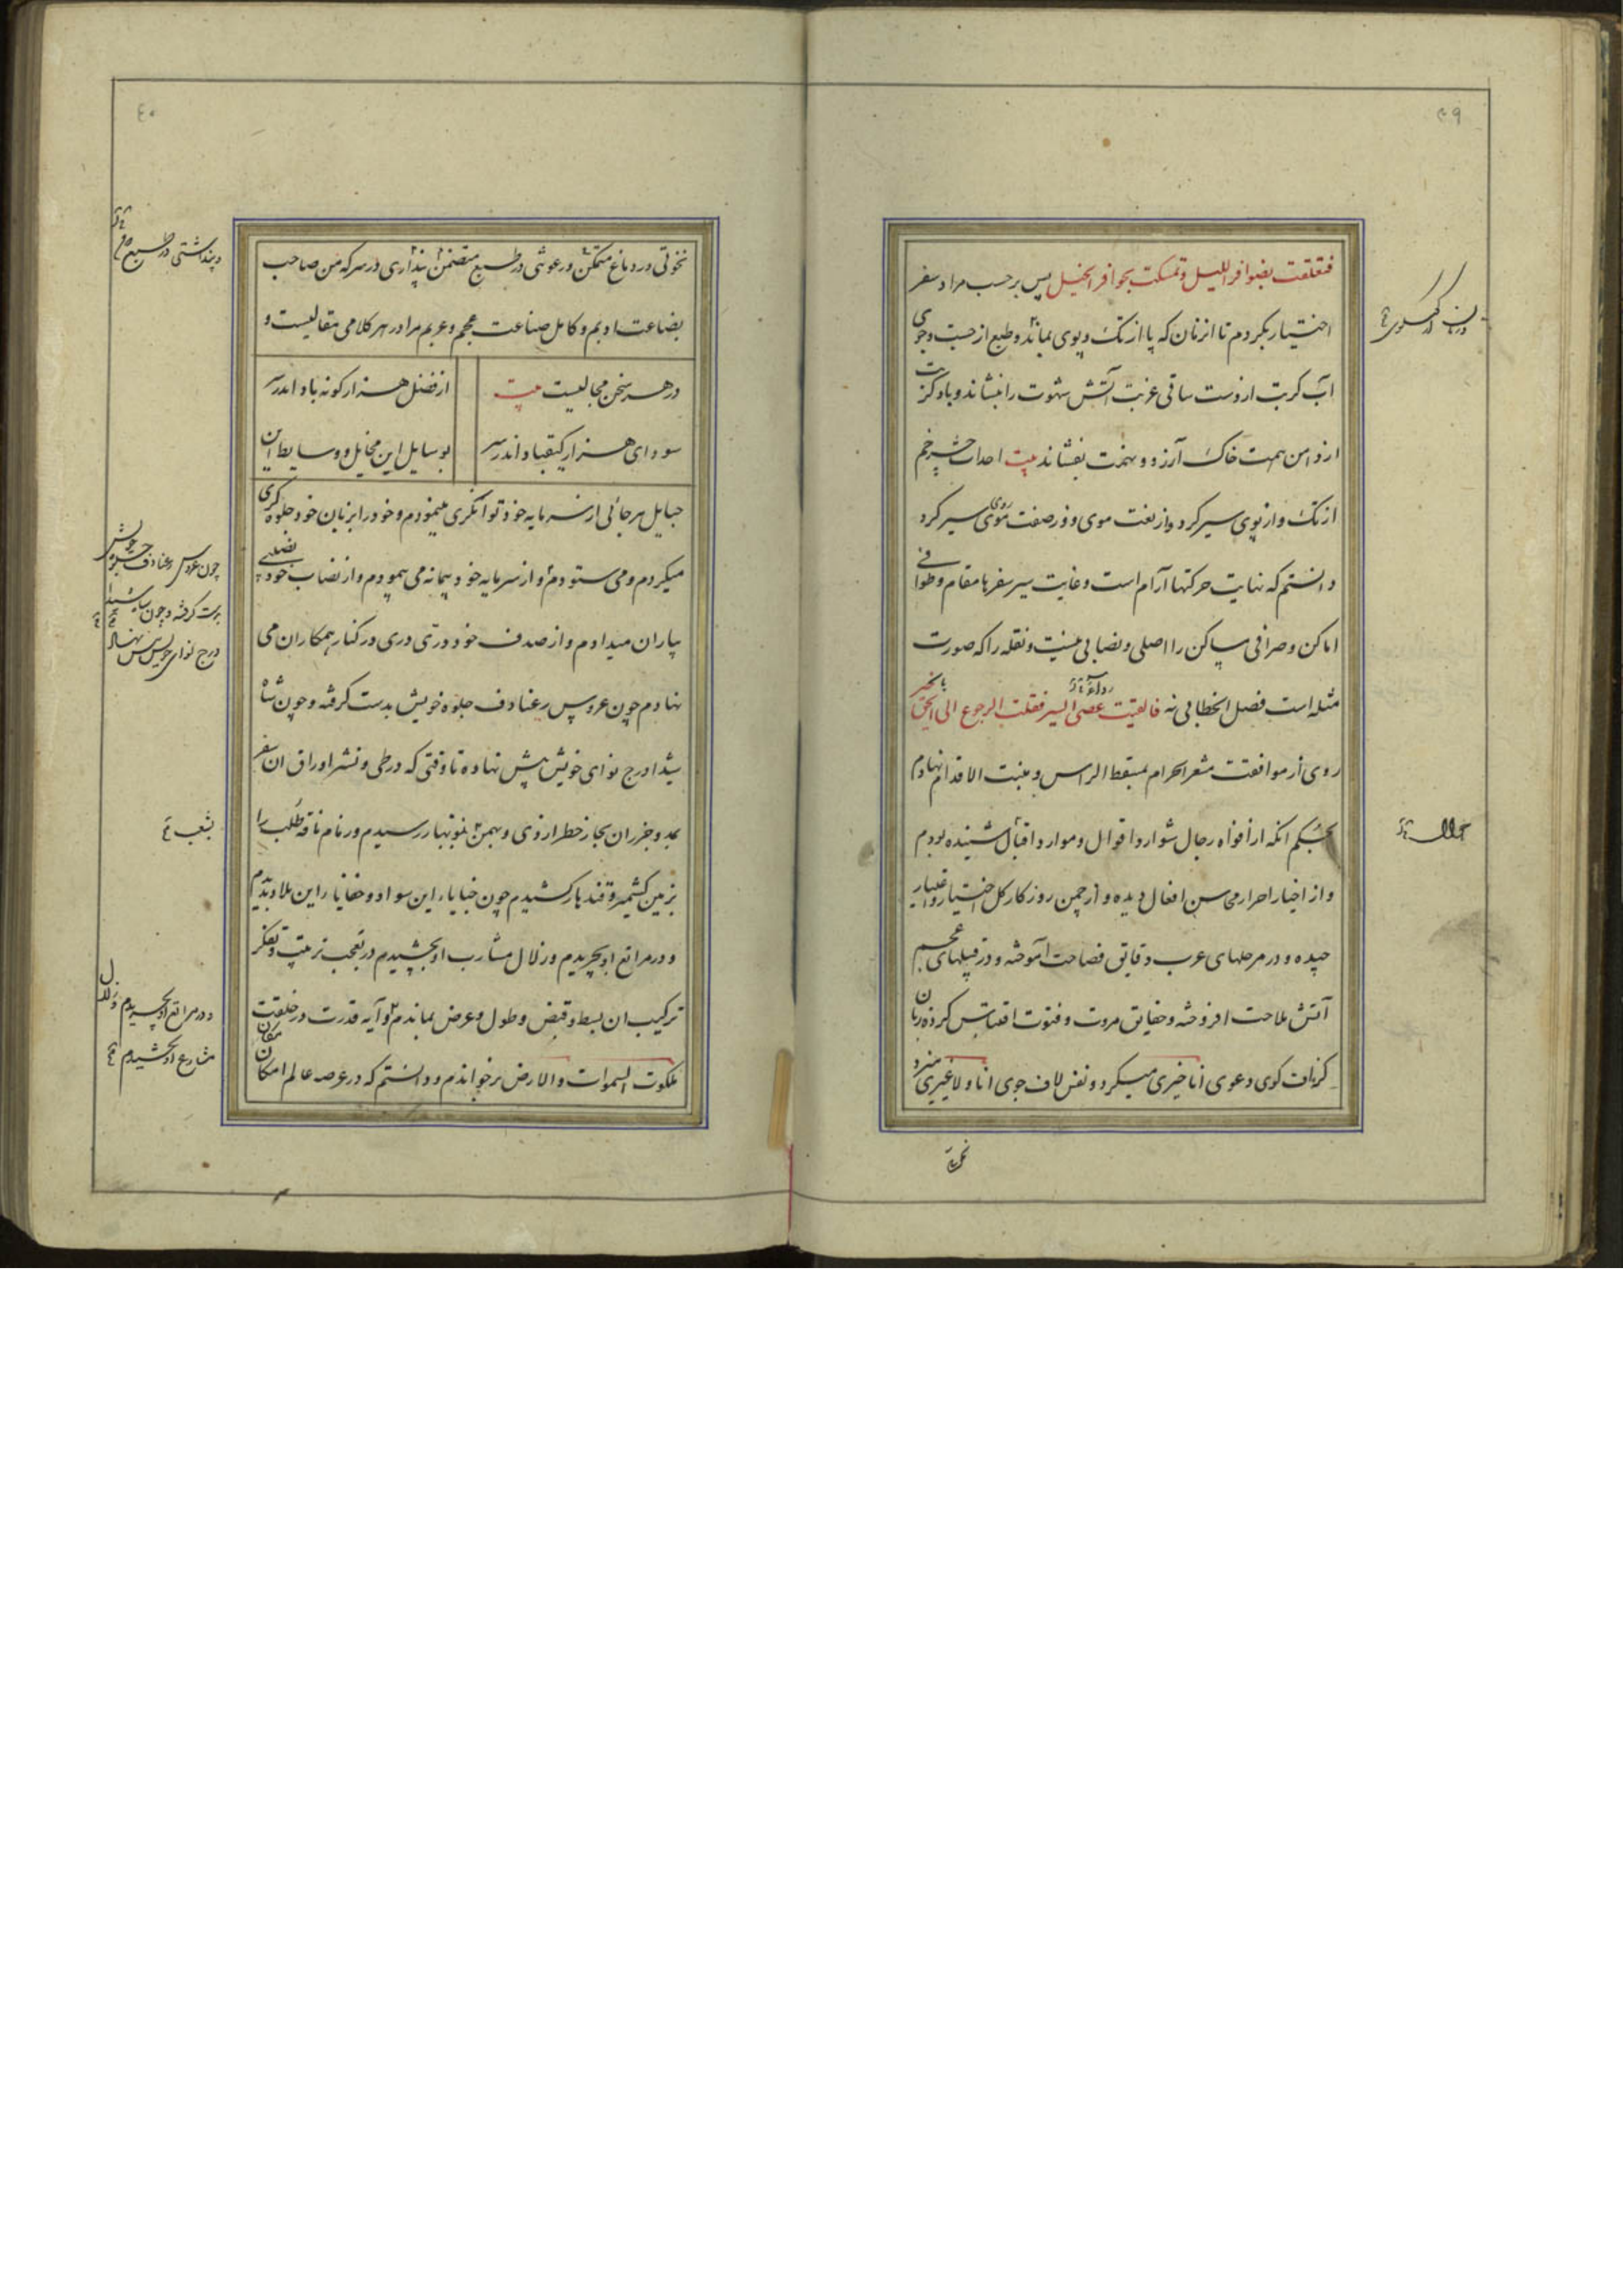 ٣٩
فتعلقت بضوافر الليل وتمسكت بحوافر الخيل پس بر حسب مراد سفر
اختیار بکردم تا از زمان که پا از تک و پوی بماند و طبع از جست و جوی
آب کربت از دست ساقی غربت آتش شهوت را بنشاند و باد کربت
از دامن همت خاک آرزو و نهمت بفشاند بیت احداث چشم
از تک و از پوی سیر کرد واز نعت موی و ز صفت روی سیر کرد
دانستم که نهایت حرکتها آرام است و غایت سیر سفرها مقام و طوافی
اماکن و صرافی ساکن را اصلی و نصابی نیست و نقله را که صورت
مثله است فضل الخطابی نه فالقيت عصى السير فقلت الرجوع الى الحق
روی از موافقت مشعر الحرام بمسقط الراس و منبت الاقدام نهادم
بحکم انکه از افواه رجال شوارد اقوال و موارد اقبال شنیده بودم
و از اخبار احرار محاسن افعال دیده و از چمن روزکار کل اختیار و اعتبار
چیده و در مرحلهای عرب دقایق فصاحت آموخته و در قبیلهای عجم
آتش ملاحت افروخته و حقایق مروت و فتوت اقتباس کرده زبان
کزاف کوی دعوی انا خیری میکرد و نفس لاف جوی انا ولا غیری میزد
٤٠
نخوتی در دماغ متمکن و رعونتی در طبع متضمن پنداری در سر که من صاحب
بضاعت ادبم و کامل صناعت عجم و عربم مرا در هر کلامی مقالیست و
در هر سخن مجالیست بیت
از فضل هزار کونه باد اندر سر
سودای هزار کیقباد اندر سر
بوسایل این مخایل و وسایط این
حبایل هر جائی از سرمایه خود توانکری مینمودم و خود را بزبان خود جلوه کری
میکردم و می ستودم و از سرمایه خود پیمانه می پیمودم و از نصاب خود نصیبی
بیاران میدادم و از صدف خود درّی دری در کنار همکاران می
نهادم چون عروس رعنا دف جلوه خویش بدست کرفته و چون شاه
شیدا درج نوای خویش پیش نهاده تا وقتی که در طی و نشر اوراق ان سفر
بمد و جزر ان بحار خطر از دی و بهمن بنوبهار رسیدم و زمام ناقه طلب را
بزمین کشمیر و قندهار کشیدم چون خبایاء این سواد و خفایاء این بلاد بدیدم
و در مراتع او بچریدم و زلال مشارب او بچشیدم در تعجب ترتیب و تفکر
ترکیب ان بسط و قبض و طول و عرض بماندم و آیه قدرت در خلقت
ملکوت السموات والارض برخواندم و دانستم که در عرصه عالم امکان
و پنداشتی در طبع
چون عروس رعنا دف جلوه خویش
بدست کرفته و چون شیدا
درج نوای خویش پیش نهاد
و در مراتع او بچریدم و زلال
مشارع او بچشیدم